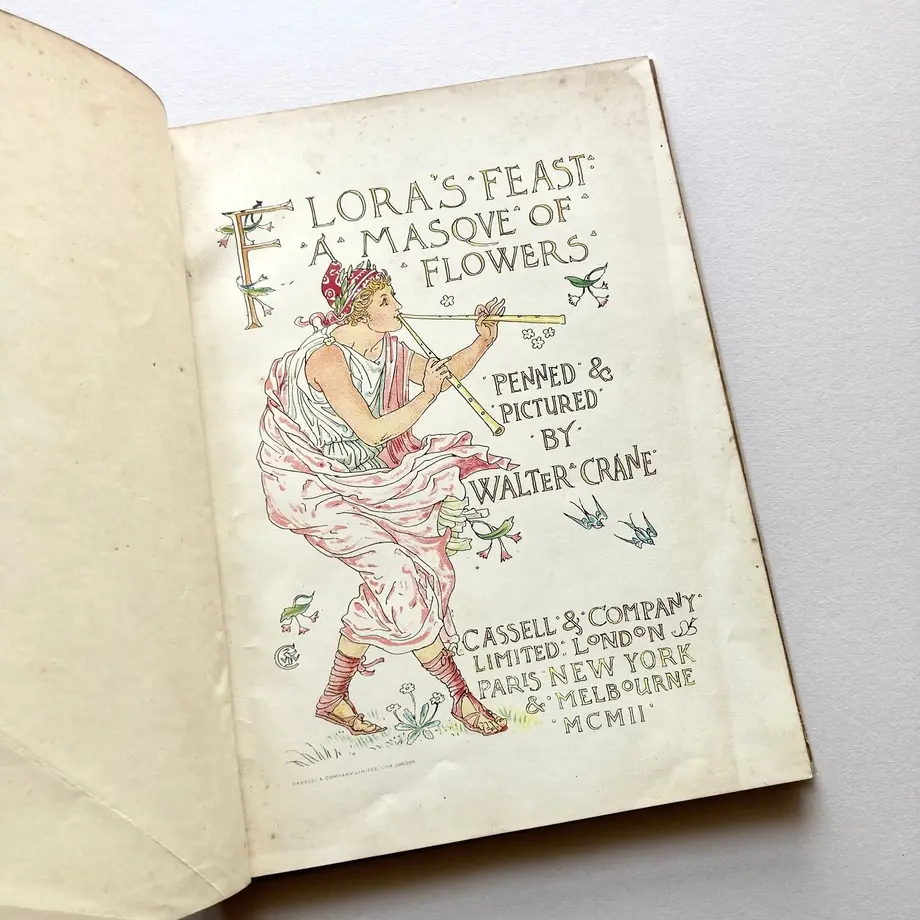 FLORA'S · FEAST ·
· A · MASQVE · OF ·
· FLOWERS ·
· PENNED · &
· PICTURED ·
· BY ·
WALTER · CRANE ·
CASSELL · & · COMPANY ·
LIMITED : LONDON
PARIS NEW YORK
& · MELBOURNE
· MCMII ·
CASSELL & COMPANY LIMITED, LITH, LONDON